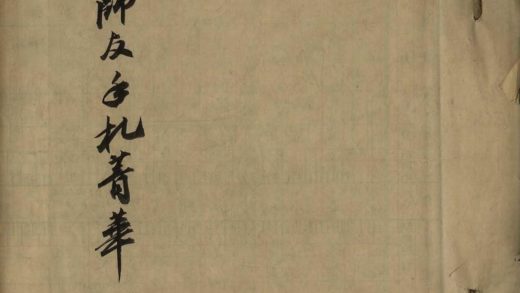 師友手札菁華